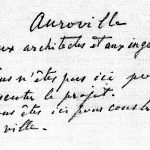 Auroville
aux architectes et aux ingé
n'êtes pas ici po
senter le projet.
êtes ici pour cons
ville.